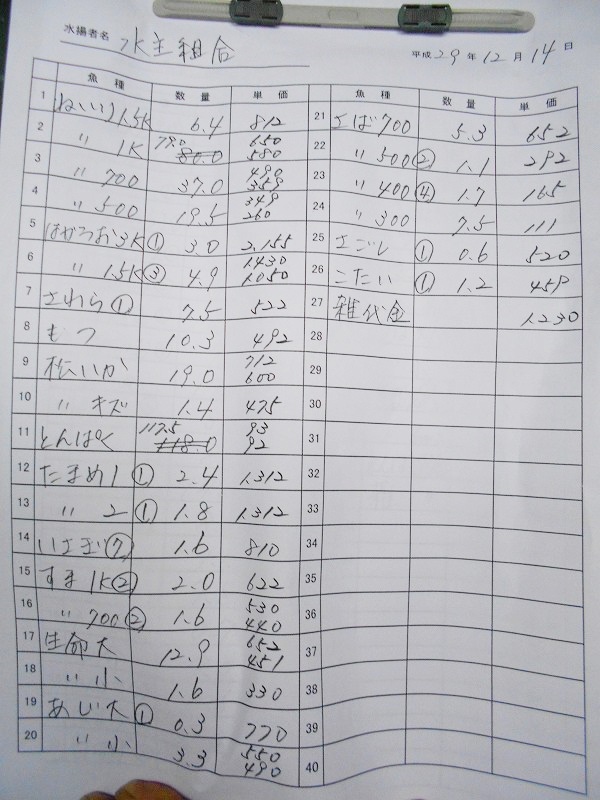 水揚者名 水主組合
平成 29 年 12 月 14 日
魚種 数量 単価
1 ねいり 1.5K 6.4 812
2 〃 1K 79.0 80.0 650 580
3 〃 700 37.0 490 359
4 〃 500 19.5 349 260
5 はがつお 3K ① 3.0 2,155
6 〃 1.5K ③ 4.9 1.430 1.050
7 さわら ① 7.5 522
8 もつ 10.3 492
9 松いか 19.0 712 600
10 〃 キズ 1.4 475
11 とんぱく 117.5 118.0 93 92
12 たまめ 1 ① 2.4 1.312
13 〃 2 ① 1.8 1.312
14 いさぎ ⑦ 1.6 810
15 すま 1K ② 2.0 622
16 〃 700 ② 1.6 530 440
17 大 12.9 652 451
18 〃 小 1.6 330
19 あじ大 ① 0.3 770
20 〃 小 3.3 550 490
魚種 数量 単価
21 さば 700 5.3 652
22 〃 500 ② 1.1 292
23 〃 400 ④ 1.7 165
24 〃 300 7.5 111
25 さごし ① 0.6 520
26 こたい ① 1.2 459
27 雑代金 1.230
28
29
30
31
32
33
34
35
36
37
38
39
40